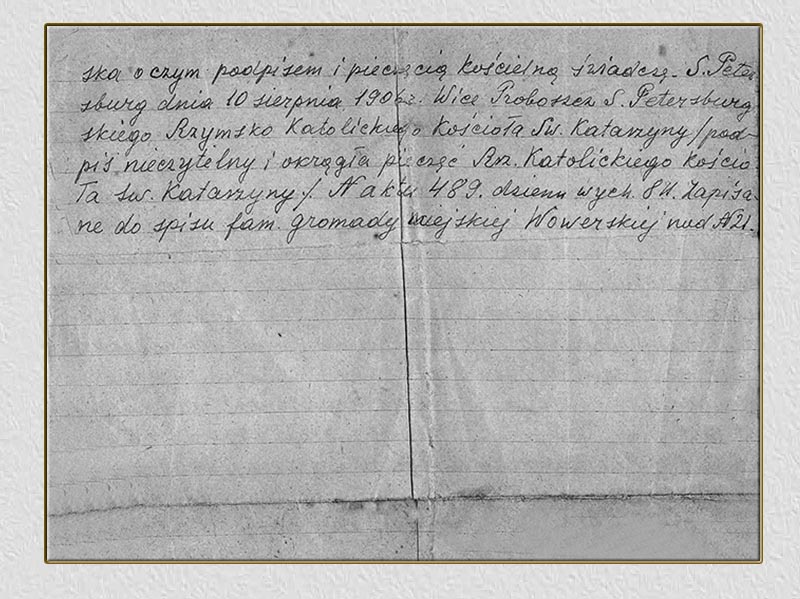 ska o czym podpisem i pieczęcią kościelną świadczę. S. Peter
sburg dnia 10 sierpnia 1906 r. Wice Proboszcz S. Petersburg
skiego Rzymsko Katolickiego Kościoła Św. Katarzyny /pod-
piś nieczytelny i okrągła pieczęć Rz. Katolickiego kościo
ła św. Katarzyny/. N aktu 489. dzienn wych. 84. Zapisa-
ne do spisu fam. gromady miejskiej Wowerskiej pod N 21.